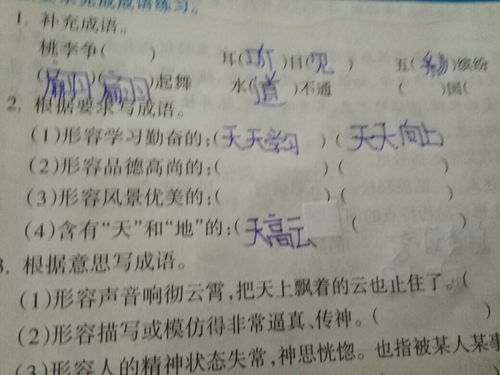 完成成语练习。
1. 补充成语。
桃李争( ) 耳( )目(见) 五( )缤纷
(扇风)(扇风)起舞 水(道)不通 ( )国(
2. 根据要求写成语。
(1)形容学习勤奋的:(天天学习)(天天向上)
(2)形容品德高尚的:( )( )
(3)形容风景优美的:( )( )
(4)含有“天”和“地”的:(天高云 ( )
3. 根据意思写成语。
(1)形容声音响彻云霄,把天上飘着的云也止住了。(
(2)形容描写或模仿得非常逼真、传神。(
(3)形容人的精神状态失常,神思恍惚。也指被某人某事